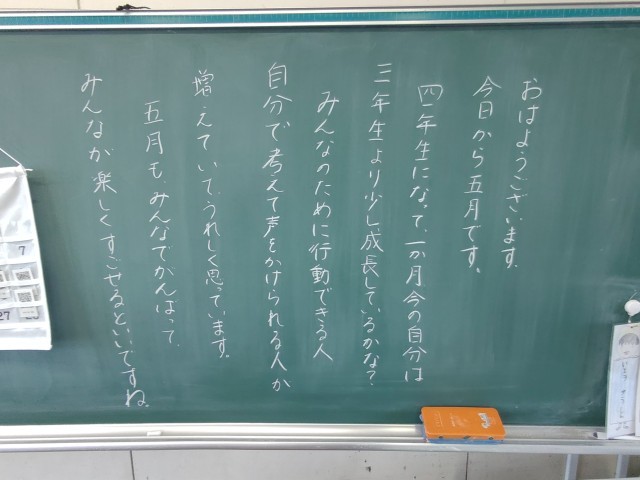 おはようございます。
今日から五月です。
四年生になって、一か月今の自分は
三年生より少し成長しているかな？
みんなのために行動できる人
自分で考えて声をかけられる人が
増えていて、うれしく思っています。
五月も、みんなでがんばって、
みんなが楽しくすごせるといいですね。
7
27